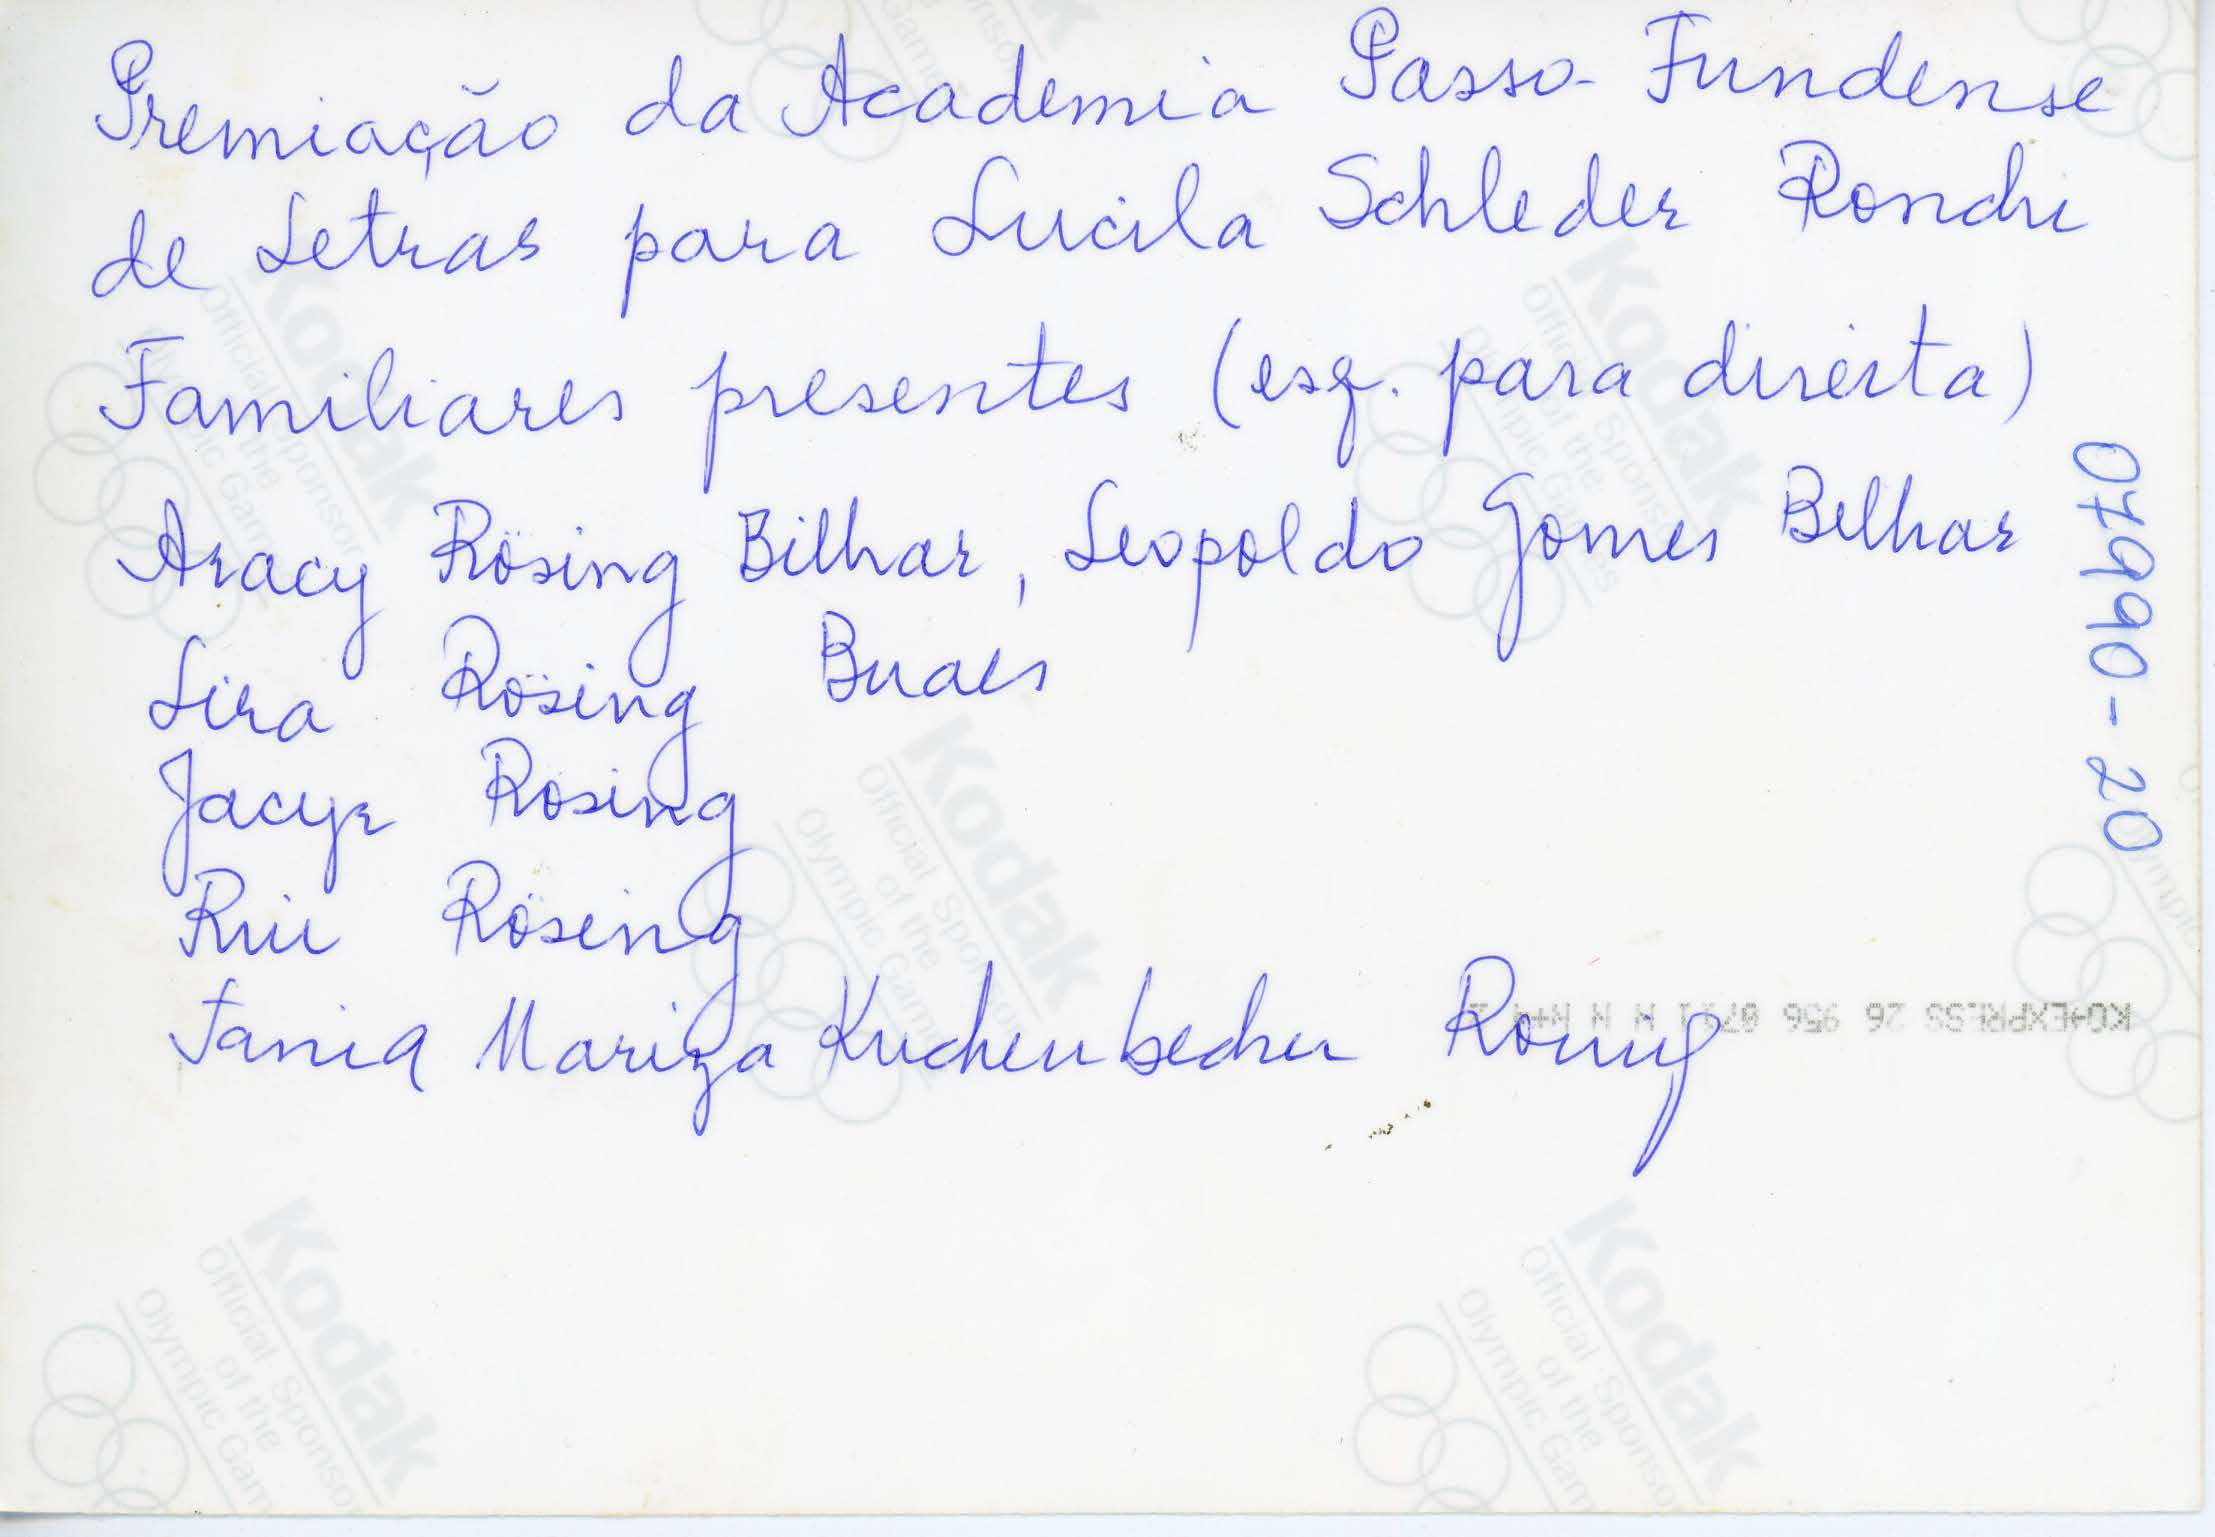 Premiação da Academia Passo-Fundense
de Letras para Lucila Schleder Ronchi
Familiares presentes (esq. para direita)
Aracy Rösing Bilhar, Leopoldo Gomes Bilhar
Lira Rösing Buaes
Jacyr Rösing
Rui Rösing
Tania Mariza Kuchenbecker Rösing
07990-20
Kodak
Official Sponsor
of the
Olympic Games